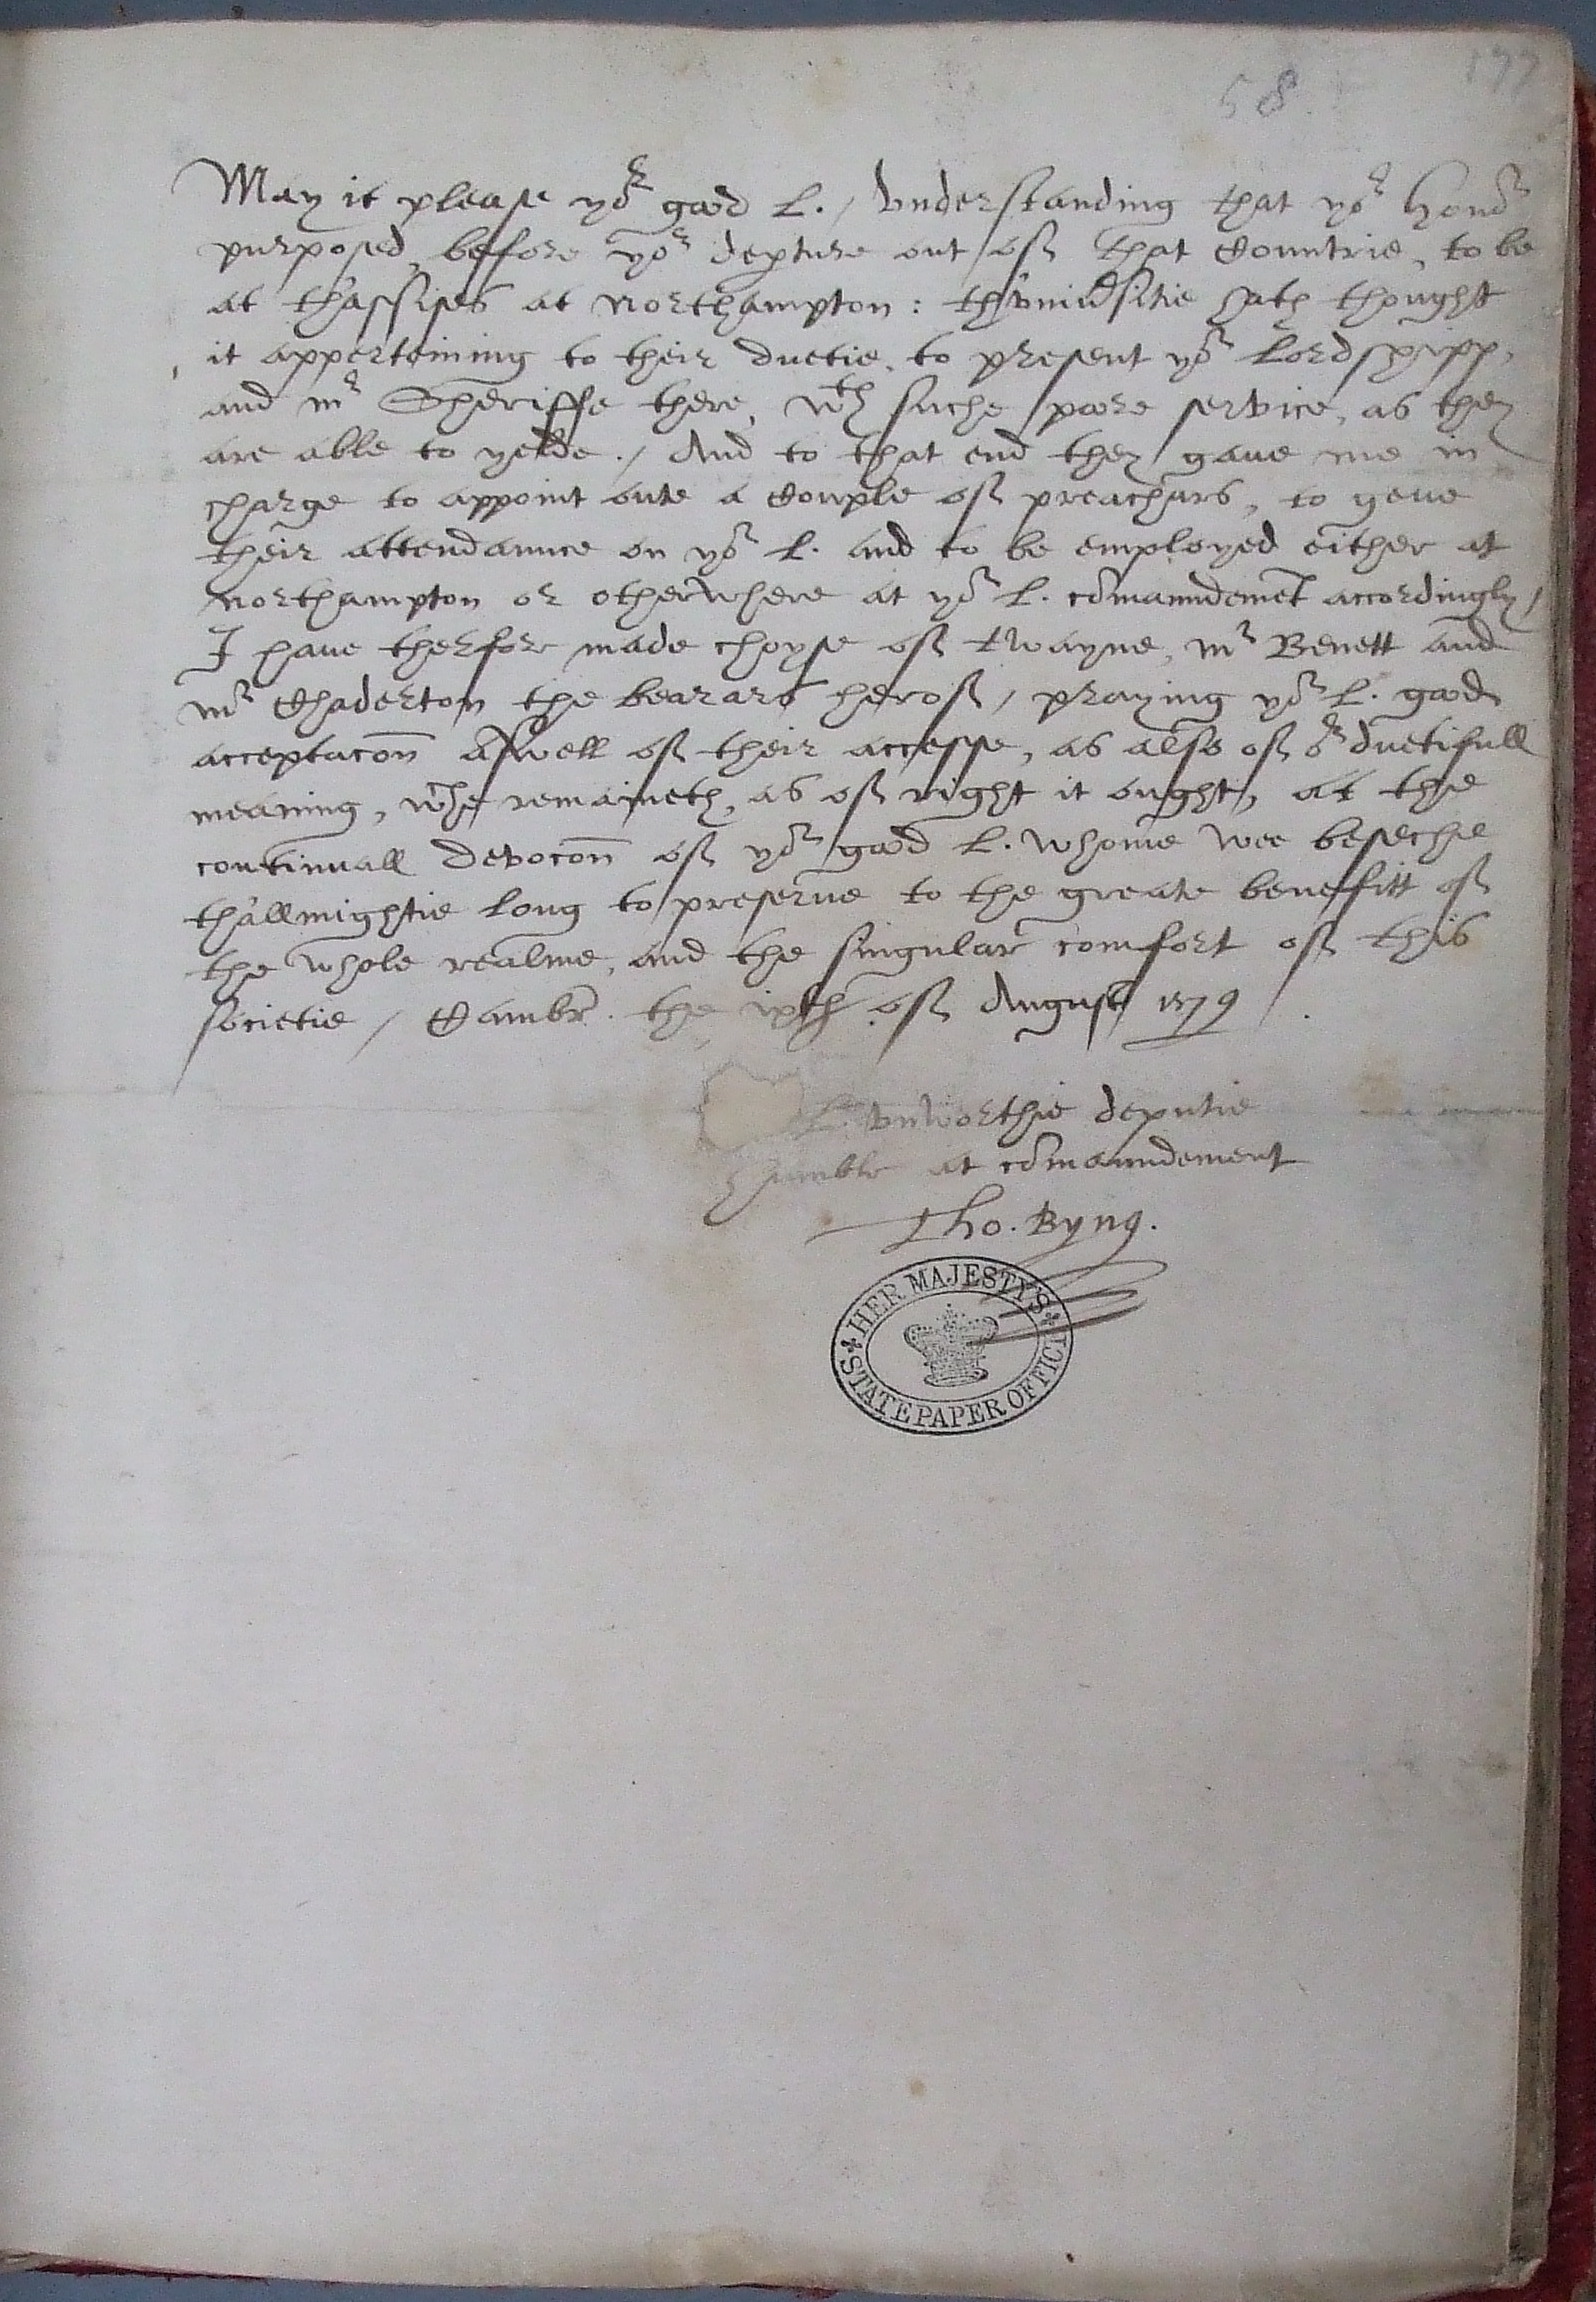 58
177
May it please yor good L. / vnderstanding that yor honor
purposed, before yor depture out of that Countrie, to be
at thassises at Northampton: thvniuersitie hath thought
it apperteining to their duetie, to present yor Lordshipp,
and mr Sheriffe there, wth suche poore service, as they
are able to yelde. / And to that end they gaue me in
charge to appoint oute a Couple of preachurs, to yeue
their attendaunce on yor L. and to be employed either at
Northampton or otherwhere at yor L. comaundemet accordingly /
I haue therfore made choyse of twayne, mr Benett and
mr Chaderton the bearars herof, praying yor L. good
acceptacon aswell of their accesse, as also of or duetifull
meaning, wche remaineth, as of right it ought, at the
continuall devocon of yor good L. whome wee beseche
thallmightie long to preserue to the greate benefitt of
the whole realme, and the singular comfort of this
societie / Cambr. the ixth of August 1579 /.
L. vnworthie deputie
humble at comaundement
Tho. Byng.
HER MAJESTY'S
STATE PAPER OFFICE